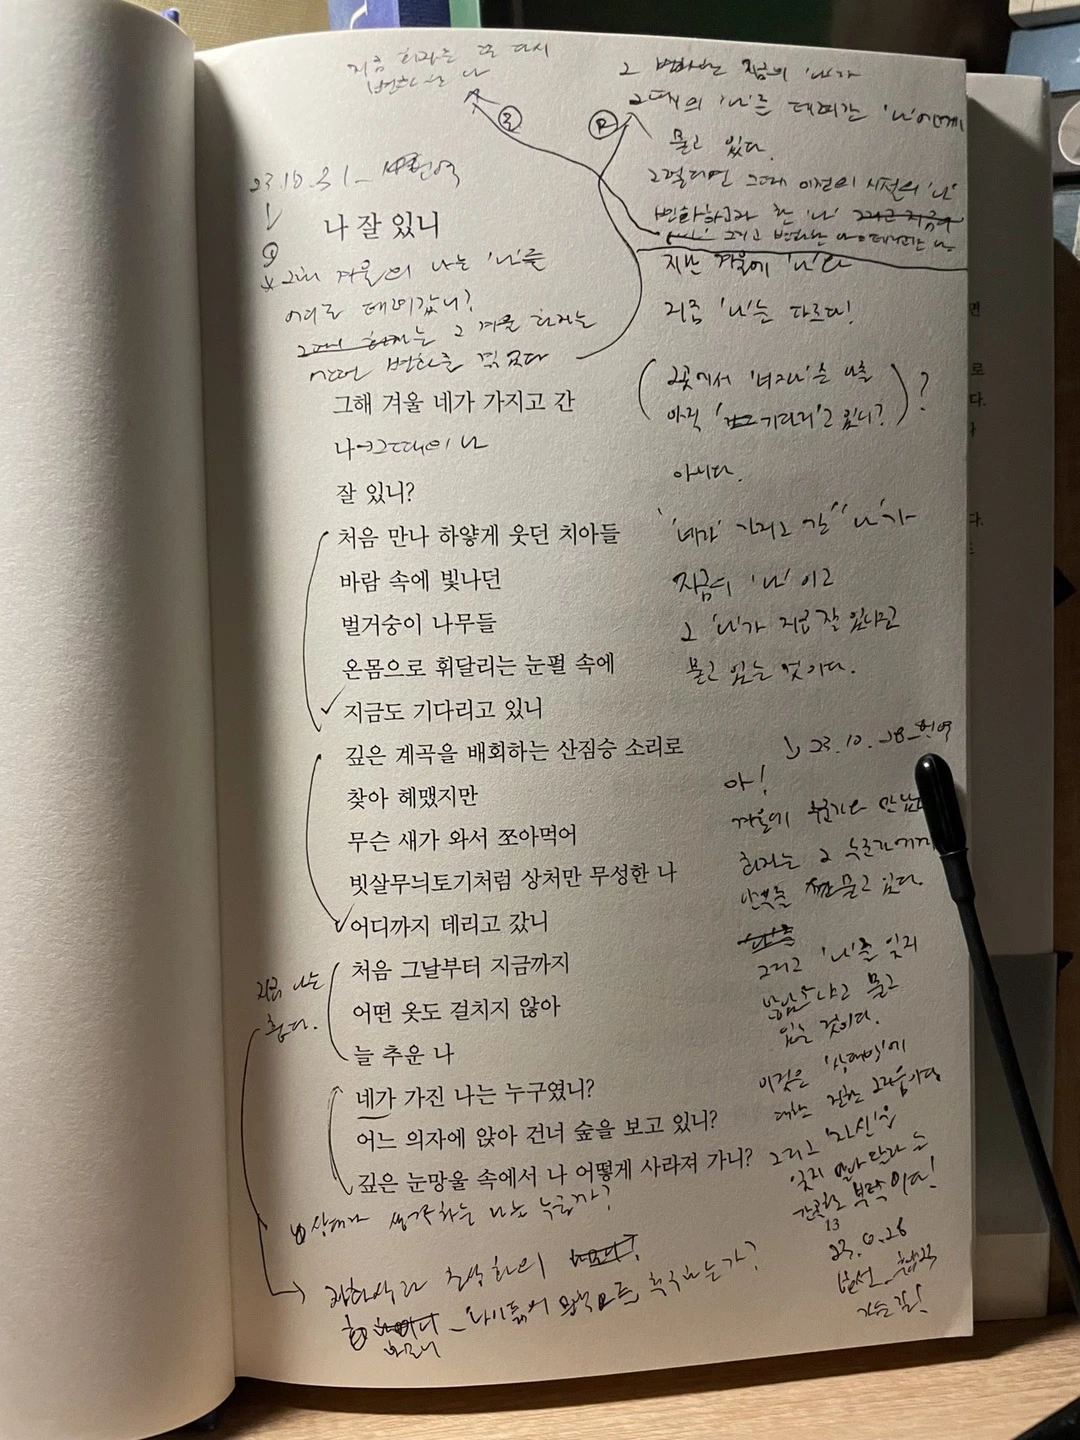 지금 화자는 또 다시
변화하는 나
②
그 변화하는 지금의 '나'가
그때의 '나'를 데려간 '나'에게
묻고 있다.
그렇다면 그때 이전의 시절의 '나'
변화하고자 한 '나'
그리고 변화한
지난 겨울에 '나'와
지금 '나'는 다르다!
23.10.31_
나 잘 있니
그해 겨울의 나는 '나'를
어디로 데려갔니?
그 겨울 화자는
어떤 변화를 겪었다
그해 겨울 네가 가지고 간
나→그때의 나
잘 있니?
처음 만나 하얗게 웃던 치아들
바람 속에 빛나던
벌거숭이 나무들
온몸으로 휘달리는 눈펄 속에
지금도 기다리고 있니
깊은 계곡을 배회하는 산짐승 소리로
찾아 헤맸지만
무슨 새가 와서 쪼아먹어
빗살무늬토기처럼 상처만 무성한 나
어디까지 데리고 갔니
처음 그날부터 지금까지
어떤 옷도 걸치지 않아
늘 추운 나
네가 가진 나는 누구였니?
어느 의자에 앉아 건너 숲을 보고 있니?
깊은 눈망울 속에서 나 어떻게 사라져 가니?
지금 나는
춥다.
상대가 생각하는 나는 누굴까?
(그곳에서 나를
아직 기다리고 있니?)?
아니다.
'네가' 가지고 간 '나'가
지금의 '나'이고
그 '나'가 지금 잘 있냐고
묻고 있는 것이다.
23.10.28_
아!
겨울에 누군가와 만났
화자는 그 누군가에게
안부를 묻고 있다.
그리고 '나'를 잊지
않았느냐고 묻고
있는 것이다.
이것은 '상대방'에
대한 진한 그리움이다
그리고 '자신'을
잊지 말아 달라는
간곡한 부탁이다!
가는 길!